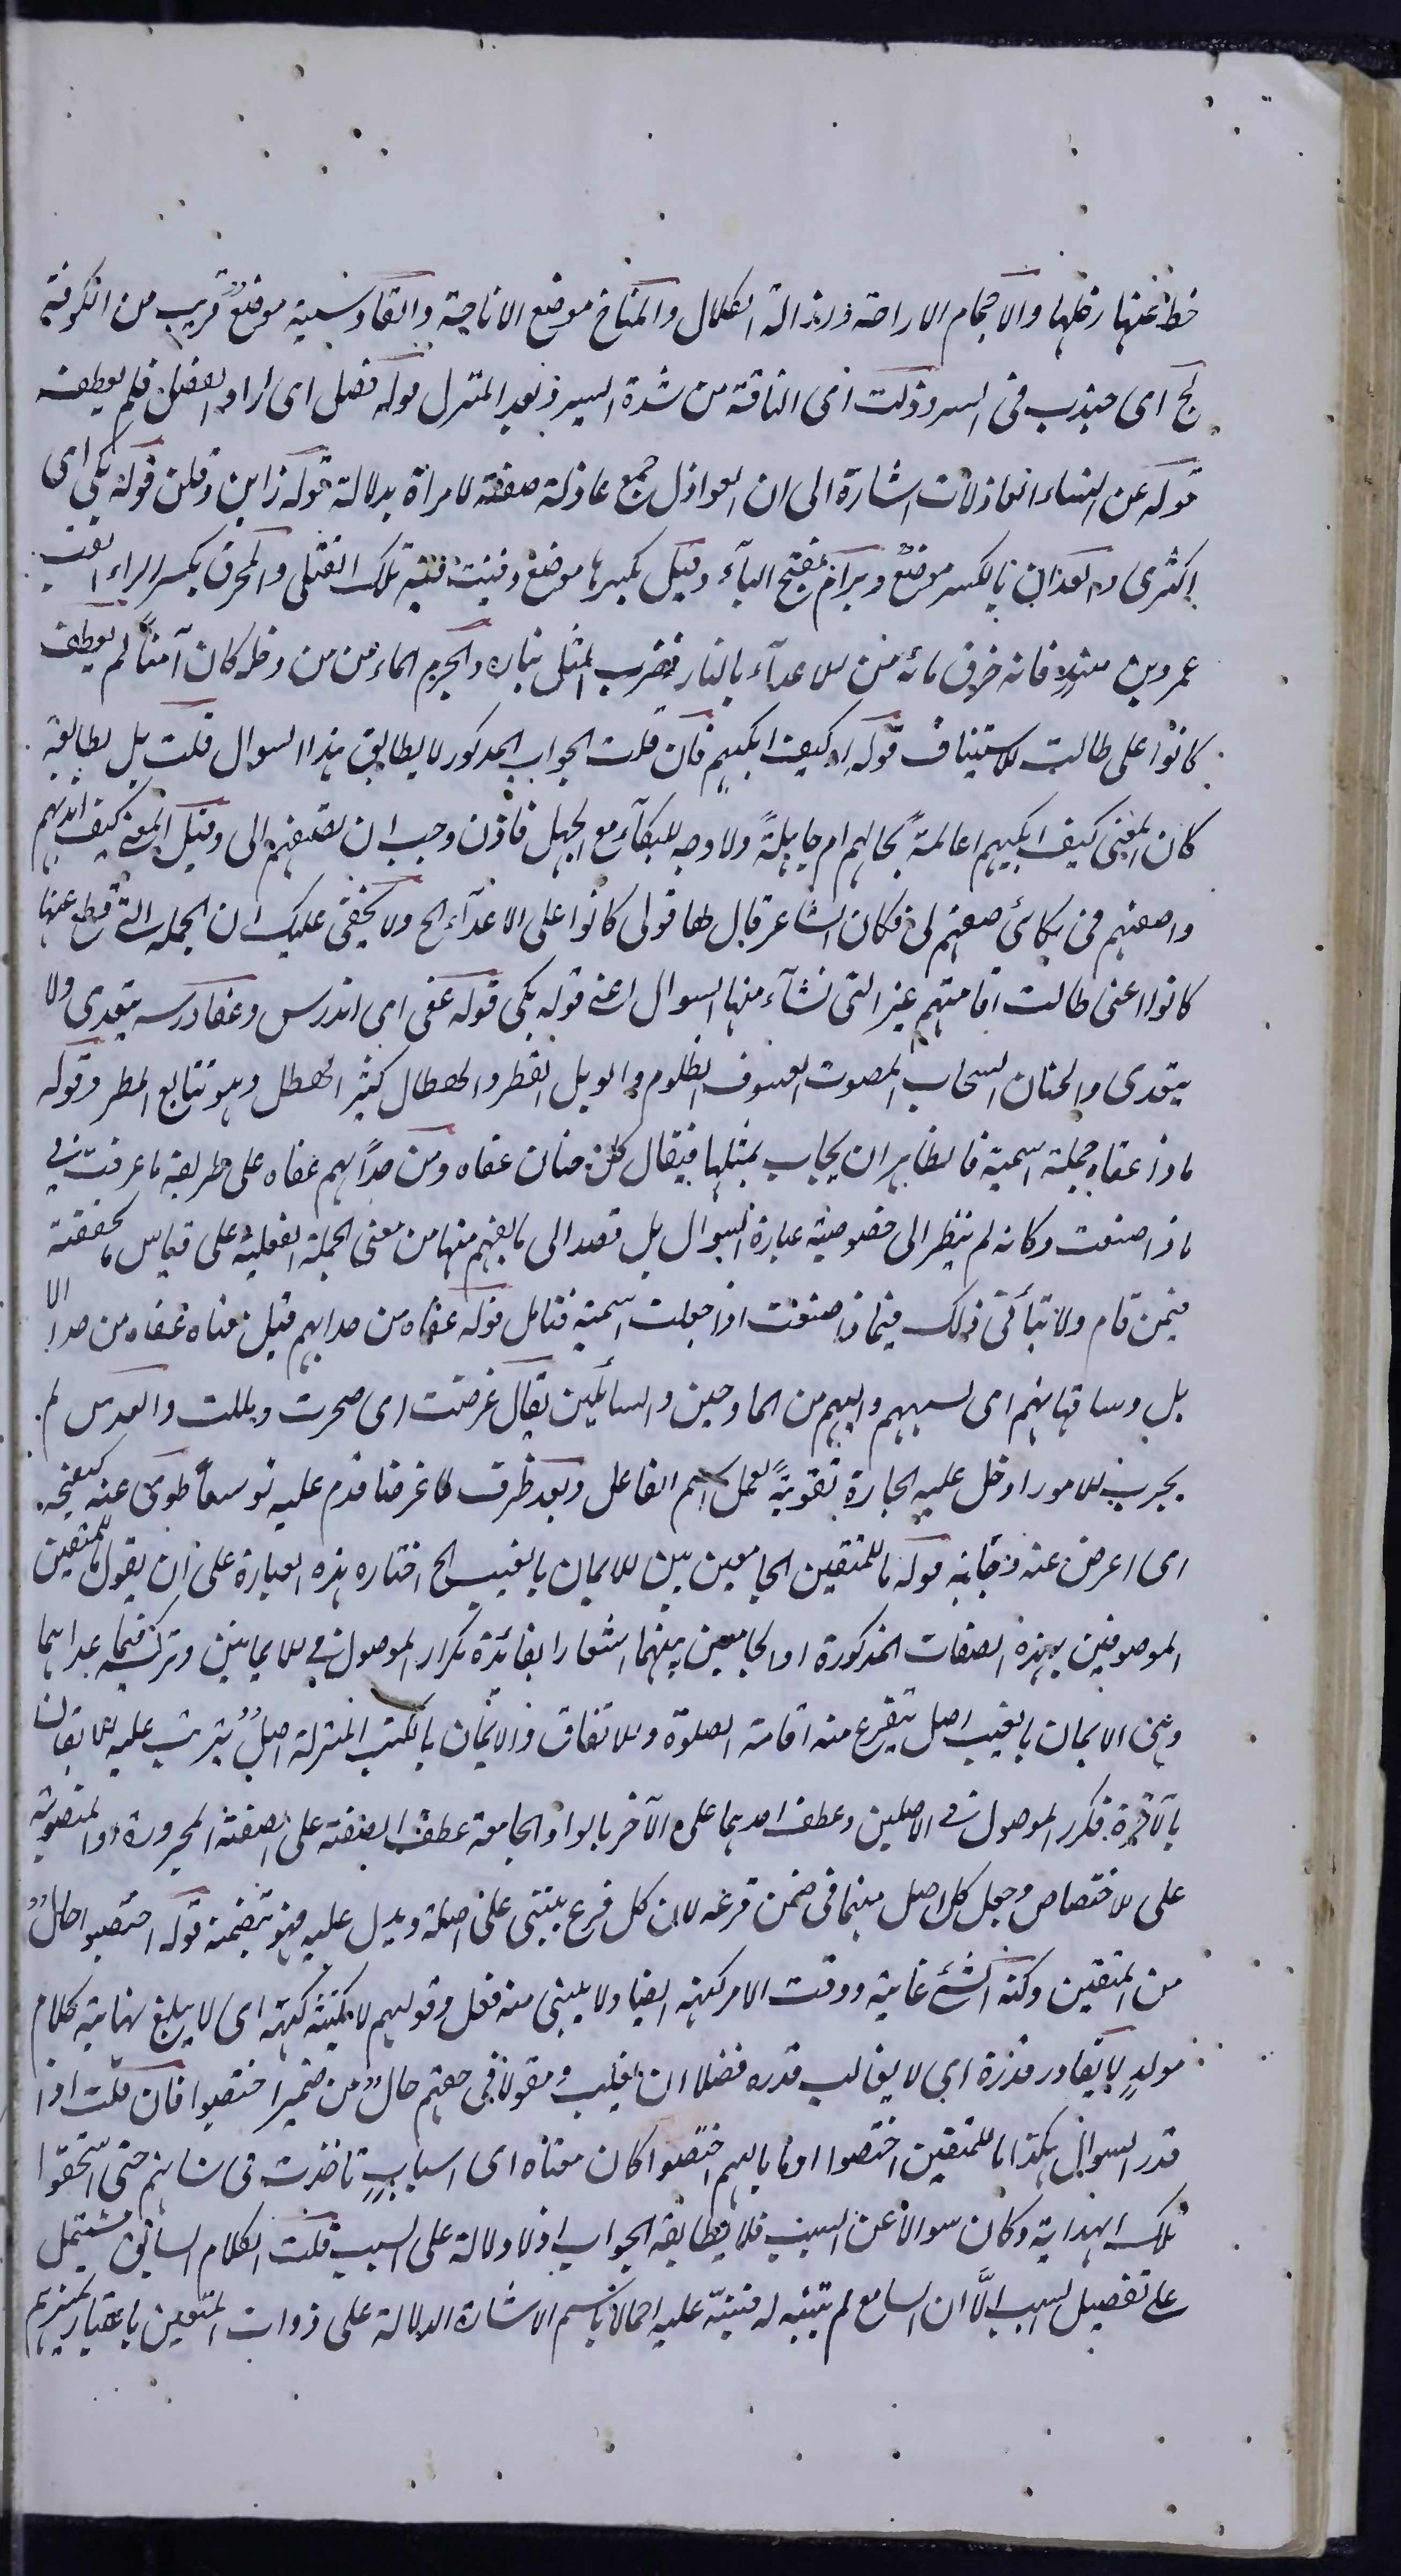 حط عنها رحلها والاجمام الاراحة وازالة الكلال والمناخ موضع الاناخة والقادسية موضعٌ قريب من الكوفة
لج اى جذب فى السير وذلت اى الناقة من شدة السير وبعد المنزل قوله فصل اى اراد الفصل فلم يعطف
قوله عن النساء العاذلات اشارة الى ان العواذل جمع عاذلة صفة لامرأة بدلالة قوله زاين وقلن قوله بكى اى
اكثرى و العذاب بالكسر موضعٌ وبرام بفتح الباء وقيل بكسرها موضع وفتية تلك القتلى والمحرق بكسر الراء لقب
عمرو بن فانه حرق مائة من الاعداء بالنار فضرب المثل بناره والحرم الماء من من دخله كان آمناً لم يعطف
كانوا على طالت للاستيناف قوله او كيف ابكيهم فان قلت الجواب المذكور لا يطابق هذا السوال قلت بل يطابقه
كان المعنى كيف ابكيهم اعالمةً بحالهم ام جاهلةً ولا وجه للبكاء مع الجهل فاذن وجب ان تصفهم الى وقيل المعنى كيف اندبهم
واصفهم فى بكائى صفهم لى فكان الشاعر قال لها قولى كانوا على الاعداء الخ ولا يخفى عليك ان الجملة التى قطع عنها
كانوا اعنى طالت اقامتهم غير التى نشاء منها السوال اعنى قوله بكى قوله عفى اى اندرس وعفا درسه يتعدى ولا
يتعدى والحنان السحاب المصوت العسوف الظلوم والوبل القطر والهطال كثير الهطل وهو تتابع المطر وقوله
ماذا عفاه جملة اسمية فالظاهر ان يجاب بمثلها فيقال كل حنان عفاه ومن حدا بهم عفاه على طريقة ما عرفت فى
ماذا صنعت وكانه لم ينظر الى خصوصية عبارة السوال بل قصد الى ما يفهم منها من معنى الجملة الفعلية على قياس ما حققته
فيمن قام ولا يتأتى ذلك فيماذا صنعت اذا جعلت اسمية فتامل قوله عفاه من حدا بهم قيل معناه عفاه من حدا الا
بل وساقها بهم اى لسببهم واليهم من المادحين والسائلين يقال غرضت اى ضجرت ومللت والغرس لم
يجرب للامور ادخل عليه الجارة تقويةً لعمل اسم الفاعل وبعد ظرف لما غرضا قدم عليه توسعاً طوى عنه كشحه
اى اعرض عنه وجانبه قوله ما للمتقين الجامعين بين الايمان بالغيب الخ اختار هذه العبارة على ان يقول ما للمتقين
الموصوفين بهذه الصفات المذكورة او الجامعين بينهما اشعارا بفائدة تكرار الموصول فى الايمانين وتركه فيما عداهما
وهى الايمان بالغيب اصل يتفرع منه اقامة الصلوة والانفاق والايمان بالكتب المنزلة اصلٌ يترتب عليه الايقان
بالآخرة فكرر الموصول فى الاصلين وعطف احدهما على الآخر بالواو الجامعة عطف الصفة على الصفة المجرورة او المنصوبة
على الاختصاص وجعل كل اصل منهما فى ضمن فرعه لان كل فرع يبتنى على اصله ويدل عليه فهو يتضمنه قوله اختصوا حالٌ
من المتقين وكنه الشئ غايته ووقت الامر كنهه ايضا ولا يبنى منه فعل وقولهم لا يكتنه كنهه اى لا يبلغ نهايته كلام
مولدٍ لا يقادر قدره اى لا يغالب قدره فضلا ان يغلب ومقولا فى حقهم حالٌ من ضمير اختصوا فان قلت اذا
قدر السوال هكذا ما للمتقين اختصوا او ما بالهم اختصوا كان معناه اى اسبابٍ تاخذت فى شانهم حتى استحقوا
تلك الهداية وكان سوالاً عن السبب فلا يطابقه الجواب اذ لا دلالة على السبب قلت الكلام السابق مشتمل
على تفصيل السبب الاَّ ان السامع لم يتنبه له فينبّه عليه اجمالا باسم الاشارة الدلالة على ذوات المتقين باعتبار تميزهم